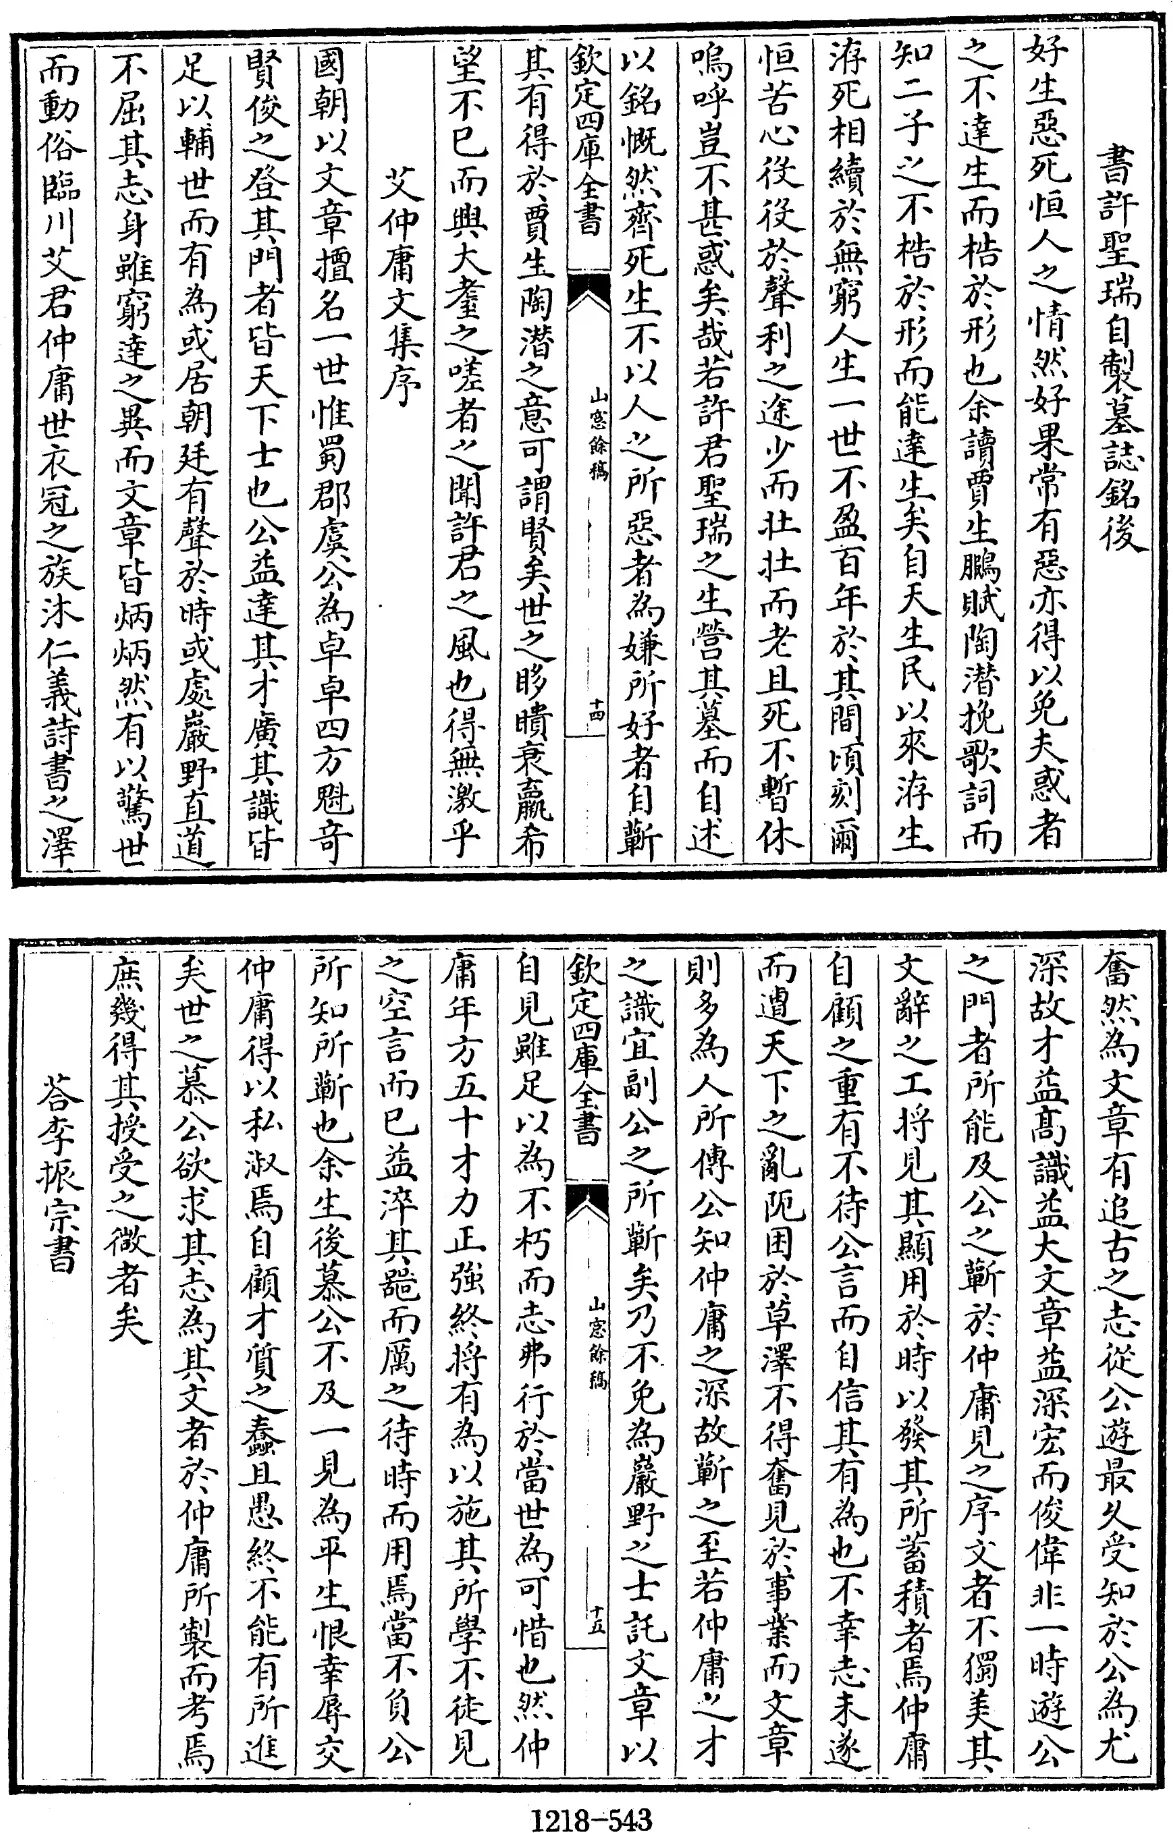 書許聖瑞自製墓誌銘後
好生惡死恒人之情然好果常有惡亦得以免夫惑者
之不達生而梏於形也余讀賈生鵩賦陶潜挽歌詞而
知二子之不梏於形而能達生矣自天生民以來洊生
洊死相續於無窮人生一世不盈百年於其間頃刻爾
恒苦心役役於聲利之途少而壯壯而老且死不暫休
嗚呼豈不甚惑矣哉若許君聖瑞之生營其墓而自述
以銘慨然齊死生不以人之所惡者為嫌所好者自蘄
欽定四庫全書
山窓餘稿
十四
其有得於賈生陶潜之意可謂賢矣世之眵瞶衰羸希
望不已而興大耋之嗟者之聞許君之風也得無激乎
艾仲庸文集序
國朝以文章擅名一世惟蜀郡虞公為卓卓四方魁竒
賢俊之登其門者皆天下士也公益達其才廣其識皆
足以輔世而有為或居朝廷有聲於時或處巖野直道
不屈其志身雖窮達之異而文章皆炳炳然有以驚世
而動俗臨川艾君仲庸世衣冠之族沐仁義詩書之澤
奮然為文章有追古之志從公遊最久受知於公為尤
深故才益髙識益大文章益深宏而俊偉非一時遊公
之門者所能及公之蘄於仲庸見之序文者不獨美其
文辭之工将見其顯用於時以發其所蓄積者焉仲庸
自顧之重有不待公言而自信其有為也不幸志未遂
而遭天下之亂阨困於草澤不得奮見於事業而文章
則多為人所傳公知仲庸之深故蘄之至若仲庸之才
之識宜副公之所蘄矣乃不免為巖野之士託文章以
欽定四庫全書
山窓餘稿
十五
自見雖足以為不朽而志弗行於當世為可惜也然仲
庸年方五十才力正強終将有為以施其所學不徒見
之空言而已益淬其噐而厲之待時而用焉當不負公
所知所蘄也余生後慕公不及一見為平生恨幸辱交
仲庸得以私淑焉自顧才質之蠢且愚終不能有所進
矣世之慕公欲求其志為其文者於仲庸所製而考焉
庶幾得其授受之微者矣
荅李振宗書
1218-543